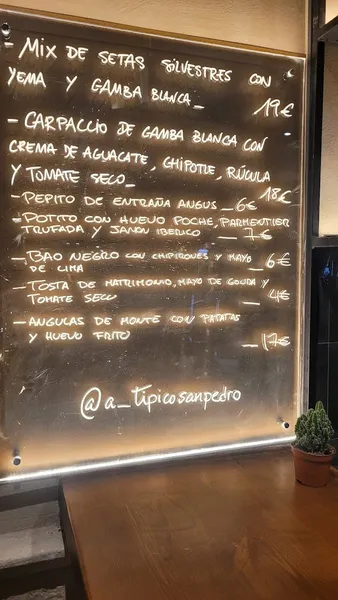 - MIX DE SETAS SILVESTRES CON
YEMA Y GAMBA BLANCA_ 19€
- CARPACCIO DE GAMBA BLANCA CON
CREMA DE AGUACATE, CHIPOTLE, RÚCULA
Y TOMATE SECO_ 18€
- PEPITO DE ENTRAÑA ANGUS_ 6€
- POTITO CON HUEVO POCHE, PARMENTIER
TRUFADA Y JAMON IBERICO _ 7€
- BAO NEGRO CON CHIPIRONES Y MAYO
DE LIMA _ 6€
- TOSTA DE MATRIMONIO, MAYO DE GOUDA Y
TOMATE SECO _ 4€
- ANGULAS DE MONTE CON PATATAS
Y HUEVO FRITO _ 17€
@a_tipicosanpedro